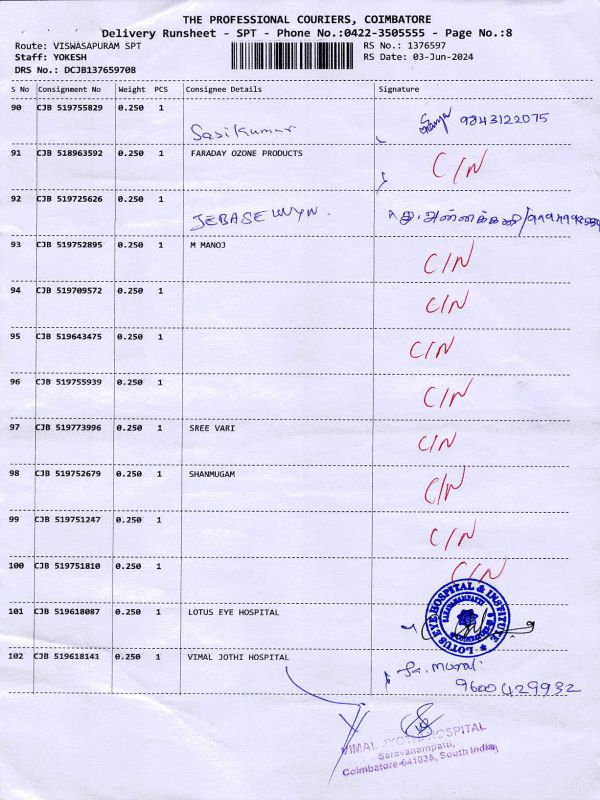 THE PROFESSIONAL COURIERS, COIMBATORE
Delivery Runsheet - SPT - Phone No.:0422-3505555 - Page No.:8
Route: VISWASAPURAM SPT RS No.: 1376597
Staff: YOKESH RS Date: 03-Jun-2024
DRS No.: DCJB137659708
S No Consignment No Weight PCS Consignee Details Signature
90 CJB 519755829 0.250 1 Sasikumar 9843122075
91 CJB 518963592 0.250 1 FARADAY OZONE PRODUCTS C/N
92 CJB 519725626 0.250 1
93 CJB 519752895 0.250 1 M MANOJ C/N
94 CJB 519709572 0.250 1 C/N
95 CJB 519643475 0.250 1 C/N
96 CJB 519755939 0.250 1 C/N
97 CJB 519773996 0.250 1 SREE VARI C/N
98 CJB 519752679 0.250 1 SHANMUGAM C/N
99 CJB 519751247 0.250 1 C/N
100 CJB 519751810 0.250 1 C/N
101 CJB 519618087 0.250 1 LOTUS EYE HOSPITAL
LOTUS EYE HOSPITAL & INSTITUTE
102 CJB 519618141 0.250 1 VIMAL JOTHI HOSPITAL
9600429932
VIMAL JYOTHI HOSPITAL
Saravanampatti,
Coimbatore-641035, South India